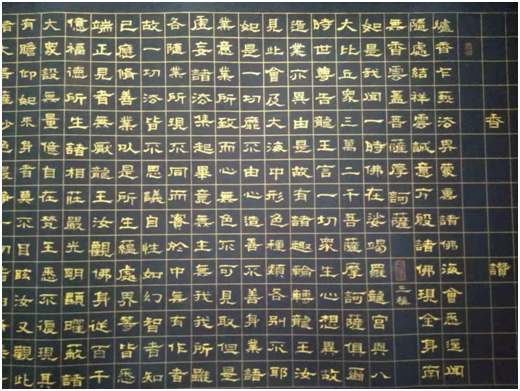 香讚
爐香乍爇法界蒙熏諸佛海會悉遙聞
隨處結祥雲誠意方殷諸佛現全身南
無香雲蓋菩薩摩訶薩 三稱
如是我聞一時佛在娑竭羅龍宮與八
大比丘眾三萬二千菩薩摩訶薩俱爾
時世尊告龍王言一切眾生心想異故
造業亦異由是故有諸趣輪轉龍王汝
見此會及大海中形色種類各別不耶
如是一切靡不由心造善不善身業語
業意業所致而心無色不可見取但是
虛妄諸法集起畢竟無主無我我所雖
各隨業所現不同而實於中無有作者
故一切法皆不思議自性如幻智者知
已應修善業以是所生蘊處界等皆悉
端正見者無厭龍王汝觀佛身從百千
億福德所生諸相莊嚴光明顯曜蔽諸
大眾設無量億自在梵王悉不復現其
有瞻仰如來身者莫不目眩汝又觀此